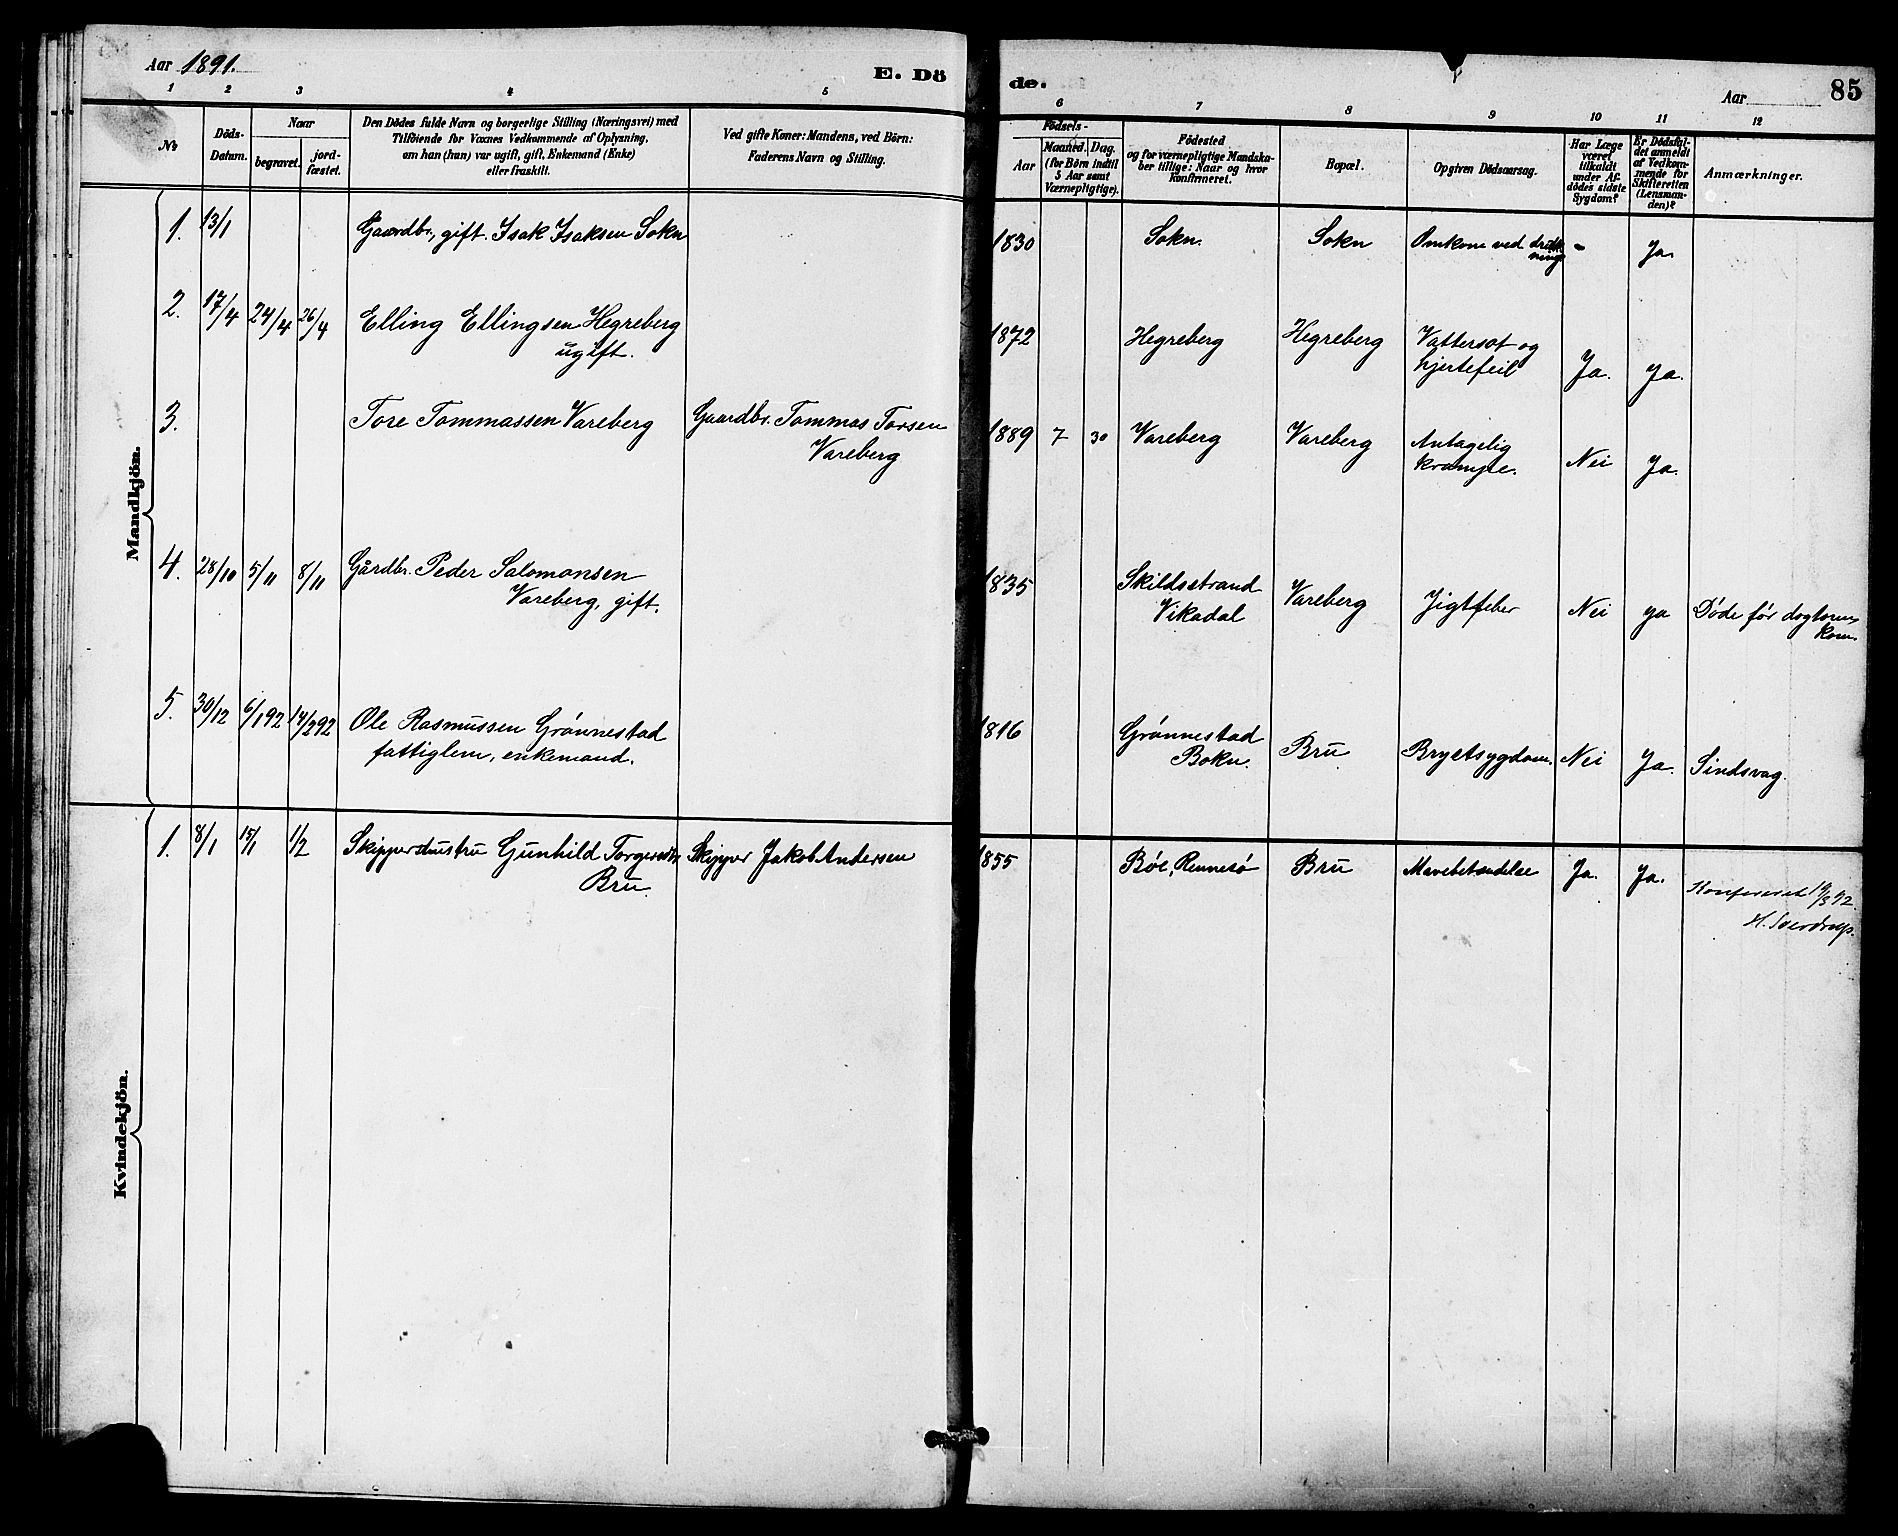 Aar 1891.
E. Dö
de.
Aar
85
1 2 3 4 5 6 7 8 9 10 11 12
No
Döds-
Datum.
Naar
begravet.
jord-
fæstet.
Den Dödes fulde Navn og borgerlige Stilling (Næringsvei) med
Tilföiende for Voxnes Vedkommende af Oplysning,
om han (hun) var ugift, gift, Enkemand (Enke)
eller fraskilt.
Ved gifte Koner: Mandens, ved Börn:
Faderens Navn og Stilling.
Födsels-
Aar
Maaned. Dag.
(for Börn indtil
5 Aar samt
Værnepligtige).
Födested
og for værnepligtige Mandska-
ber tillige: Naar og hvor
konfirmeret.
Bopæl.
Opgiven Dödsaarsag.
Har Læge
været
tilkaldt
under Af-
dödes sidste
Sygdom?
Er Dödsfal-
det anmeldt
af Vedkom-
mende for
Skifteretten
(Lensman-
den)?
Anmærkninger.
Mandkjön.
1. 13/1 Gaardbr., gift. Isak Isaksen Sokn 1830 Sokn. Sokn Omkom ved drukning - Ja.
2. 17/4 24/4 26/4 Elling Ellingsen Hegreberg 1872 Hegreberg Hegreberg Vattersot og
ugift. hjertefeil Ja. Ja.
3. Tore Tommassen Vareberg Gaardbr. Tommas Torsen 1889 7 30 Vareberg Vareberg Antagelig
Vareberg krampe. Nei Ja.
4. 28/10 5/11 8/11 Gårdbr. Peder Salomonsen 1835 Skildsstrand Vareberg Jigtfeber Nei ja Døde før dogtoren
Vareberg, gift. Vikadal kom.
5. 30/12 6/1 92 14/2 92 Ole Rasmussen Grønnestad 1816 Grønnestad Bru Brystsygdom. Nei Ja. Sindsvag.
fattiglem, enkemand. Bokn.
Kvindekjön.
1. 8/1 15/1 1/2 Skippershustru Gunhild Skipper Jakob Andersen 1855 Bøe, Rennesø Bru Mavebetændelse Ja. Ja.
Bru. Konfereret 19/3 92.
H. Sverdrup.